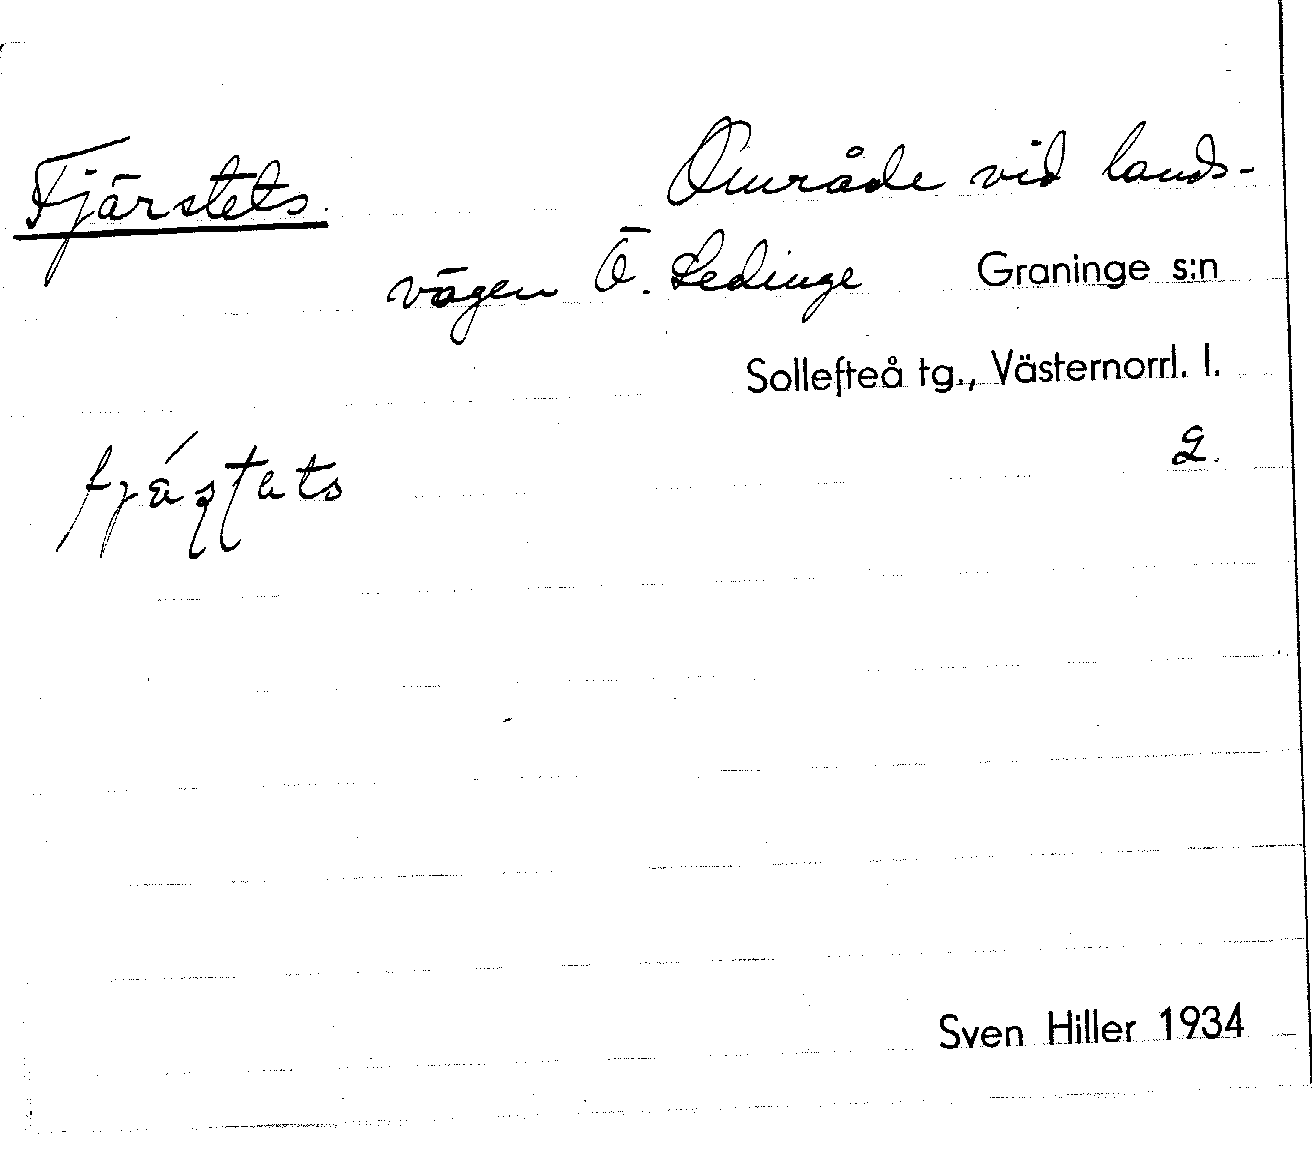 Fjärstets. Område vid lands-
vägen Ö. Ledinge Graninge s:n
Sollefteå tg., Västernorrl. l.
2.
Sven Hiller 1934